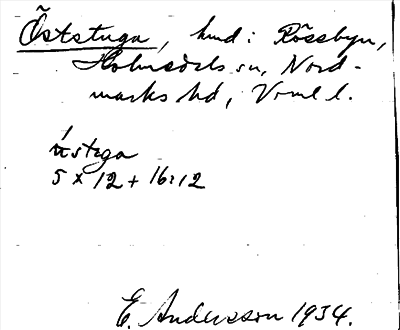 Öststuga, hmd: Rössbyn,
Holmedals sn, Nord-
marks hd, Vrml l.
ústega
5 x 12 + 16:12
E. Andersson 1934.